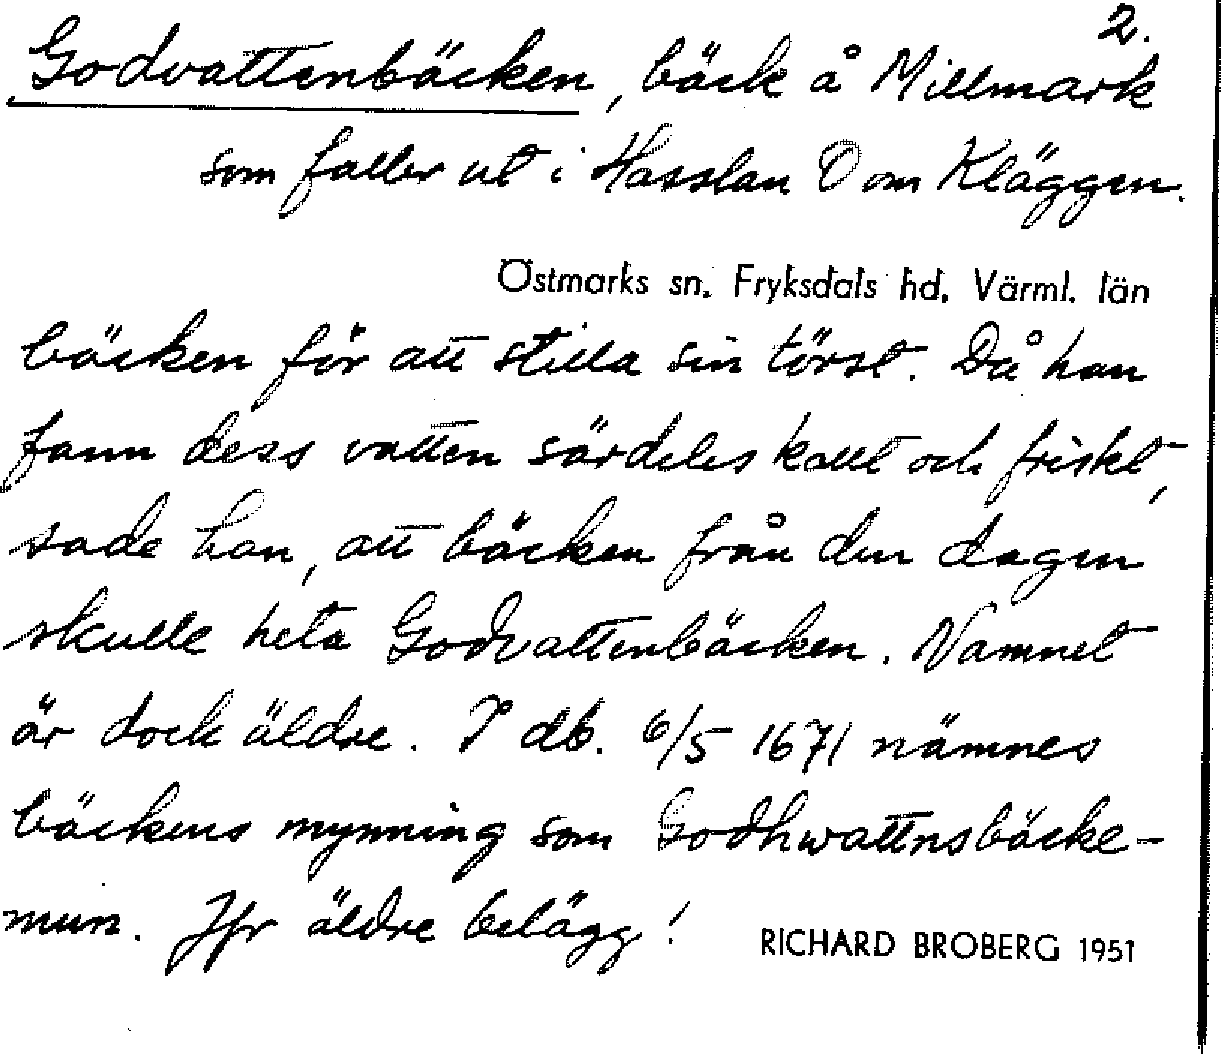 2.
Godvattenbäcken, bäck å Millmark
som faller ut i Hasslan O om Kläggen.
Östmarks sn. Fryksdals hd. Värml. län
bäcken för att stilla sin törst. Då han
fann dess vatten särdeles kallt och friskt,
sade han, att bäcken från den dagen
skulle heta Godvattenbäcken. Namnet
är dock äldre. I db. 6/5 1671 nämnes
bäckens mynning som Godhwattnsbäcke-
mun. Jfr äldre belägg!
RICHARD BROBERG 1951